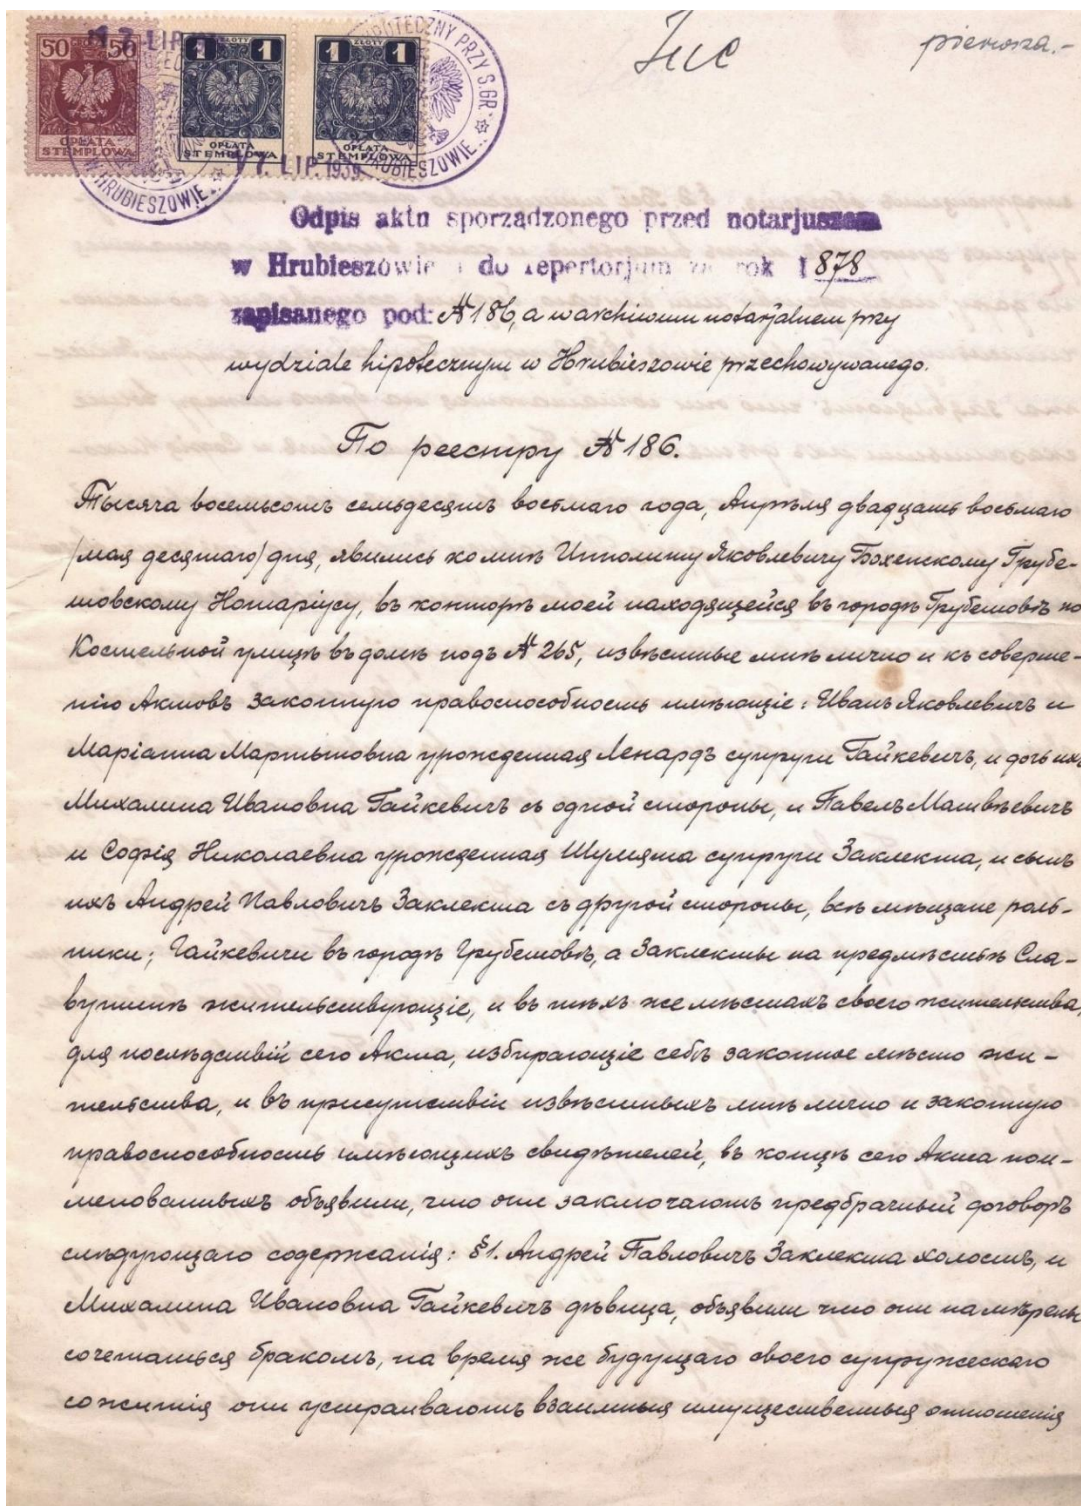 50 50
ZŁOTY
1 1
ZŁOTY
1 1
OPŁATA
STEMPLOWA
OPŁATA
STEMPLOWA
OPŁATA
STEMPLOWA
17. LIP. 1939
PRZY S.GR.
HRUBIESZOWIE
HRUBIESZOWIE
pierwsza.-
Odpis aktu sporządzonego przed notarjuszem
w Hrubieszowie i do repertorjum za rok 1878
zapisanego pod: № 186, a w archiwum notarjalnem przy
wydziale hipotecznym w Hrubieszowie przechowywanego.
По реестру № 186.
Тысяча восемьсотъ семьдесятъ восьмаго года, Апрѣля двадцать восьмаго
/мая десятаго/ дня, явились ко мнѣ Ипполиту Яковлевичу Бохенскому Грубе-
шовскому Нотаріусу, въ конторѣ моей находящейся въ городѣ Грубешовѣ по
Костельной улицѣ въ домѣ подъ № 265, извѣстные мнѣ лично и къ соверше-
нію Актовъ законную правоспособность имѣющіе: Иванъ Яковлевичъ и
Маріанна Мартыновна урожденная Ленардъ супруги Гайкевичъ, и дочь ихъ
Михалина Ивановна Гайкевичъ съ одной стороны, и Павелъ Матвѣевичъ
и Софія Николаевна урожденная Шумята супруги Заклекта, и сынъ
ихъ Андрей Павловичъ Заклекта съ другой стороны, всѣ мѣщане роль-
ники; Гайкевичи въ городѣ Грубешовѣ, а Заклекты на предмѣстьѣ Сла-
вутинѣ жительствующіе, и въ тѣхъ же мѣстахъ своего жительства,
для послѣдствій сего Акта, избирающіе себѣ законное мѣсто жи-
тельства, и въ присутствіи извѣстныхъ мнѣ лично и законную
правоспособность имѣющихъ свидѣтелей, въ концѣ сего Акта пои-
менованныхъ объявили, что они заключаютъ предбрачный договоръ
слѣдующаго содержанія: §1. Андрей Павловичъ Заклекта холостъ, и
Михалина Ивановна Гайкевичъ дѣвица, объявили что они намѣрены
сочетаться бракомъ, на время же будущаго своего супружескаго
сожитія они устраиваютъ взаимныя имущественныя отношенія